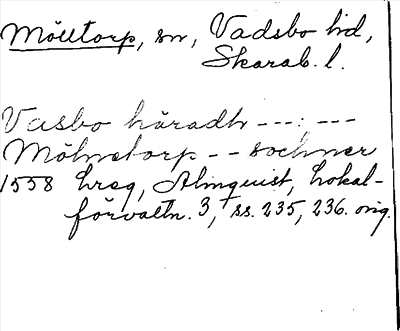 Mölltorp, sn, Vadsbo hd,
Skarab. l.
Vasbo häradh ---:---
Mölnetorp -- sochner
1558 hreg, Almquist, Lokal-
förvaltn. 3, ss. 235, 236. orig.